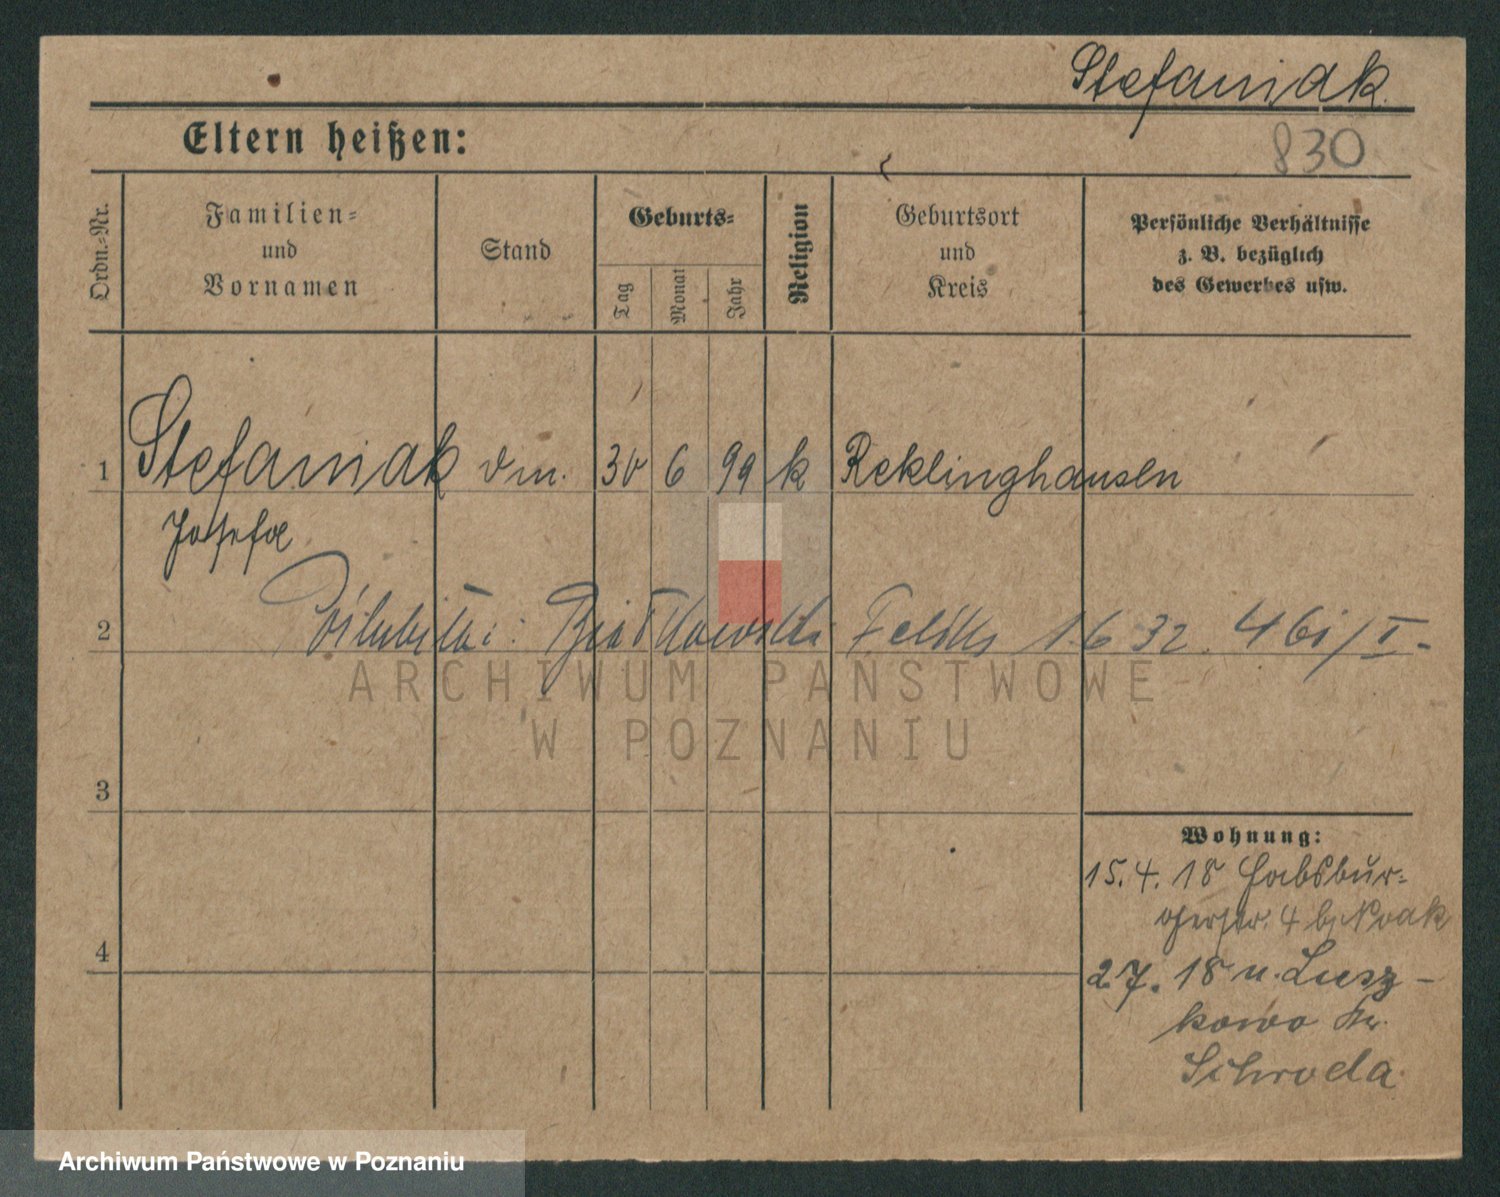 Stefaniak.
Eltern heißen:
830
Ordn.-Nr.
Familien-
und
Vornamen
Stand
Geburts-
Tag
Monat
Jahr
Religion
Geburtsort
und
Kreis
Persönliche Verhältnisse
z. B. bezüglich
des Gewerbes usw.
1 Stefaniak dm. 30 6 99 k Reklinghausen
Josefa
2 Feliks 1.6 32. 46i/I-
ARCHIWUM PAŃSTWOWE
W POZNANIU
3
Wohnung:
15.4.18 Habsbur-
gerstr. 4 b/ Noak
4
2.7.18 n. Lusz-
kowo Kr.
Schroda.
Archiwum Państwowe w Poznaniu